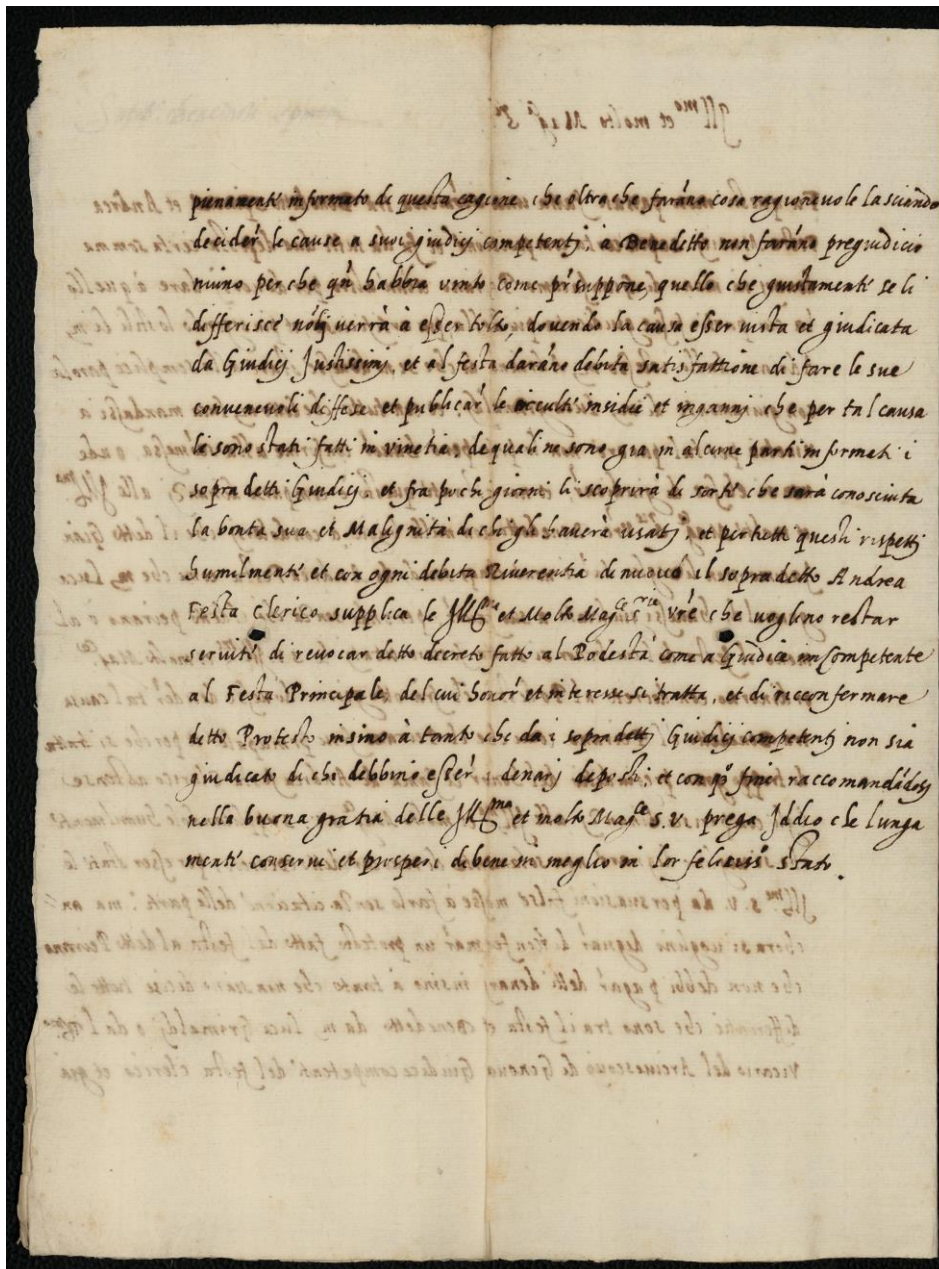 pienamente informato di questa cagione, che oltre che faráno cosa ragioneuole lasciando
decider le cause a suoi giudicij competentj: à Benedetto non faráno pregiudicio
niuno perche qñ habbia uinto come p'suppone, quello che giustamente se li
differisce nó lj uerrà à esser tolto, douendo la causa esser uista et giudicata
da Giudicij Justissimj, et al festa daráno debita satisfattione di fare le sue
conueneuoli diffese et publicar le occulte insidie et ingannj che per tal causa
li sono stati fatti in uinetia, de quali ne sono gia in alcune parti informati i
sopradetti Giudicij. et fra pochi giorni li scoprirà di sorte che sarà conosciuta
la bontà sua et Malignità di chi gli hauerà usatj, et per tutti questi rispettj
humilmente et con ogni debita Riuerentia di nuouo il sopradetto Andrea
Festa Clerico supplica le Ill.me et Molto Mag.ce S.rie vrẽ che uoglino restar
seruite di reuocar detto decreto fatto al Podestà come a Giudice incompetente
al Festa Principale, del cui honor et interesse si tratta, et di ricconfermare
detto Protesto insino à tanto che da i sopradettj Giudicij competentj non sia
giudicato di chi debbino esser i denarj deposti; et con q.o fine raccomandádosj
nella buona gratia delle Ill.ma et molto Mag.ce S.V. prega Iddio che lunga
mente conserui et prosperi di bene in meglio in lor feliciss.o stato.